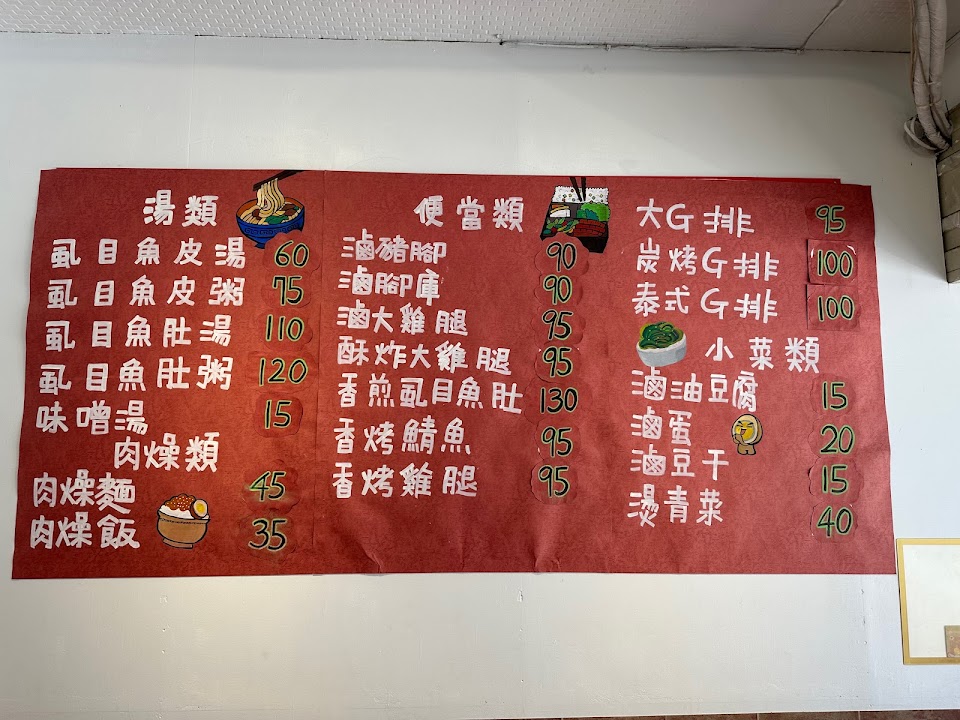 湯類
虱目魚皮湯 60
虱目魚皮粥 75
虱目魚肚湯 110
虱目魚肚粥 120
味噌湯 15
肉燥類
肉燥麵 45
肉燥飯 35
便當類
滷豬腳 90
滷腳庫 90
滷大雞腿 95
酥炸大雞腿 95
香煎虱目魚肚 130
香烤鯖魚 95
香烤雞腿 95
大G排 95
炭烤G排 100
泰式G排 100
小菜類
滷油豆腐 15
滷蛋 20
滷豆干 15
燙青菜 40